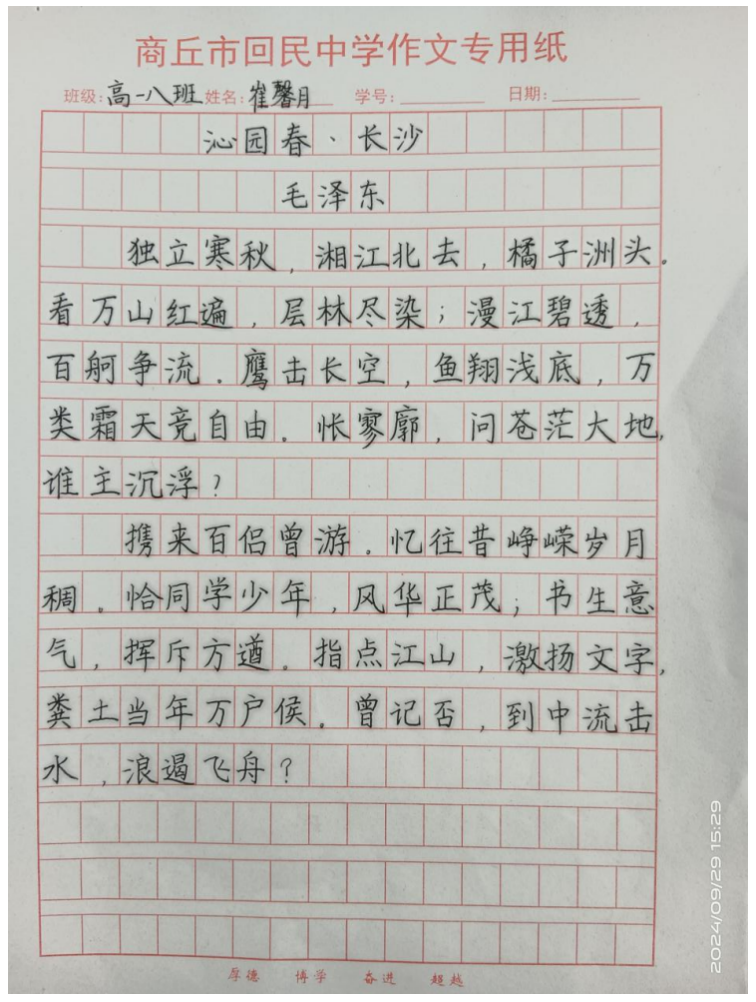 商丘市回民中学作文专用纸
班级:高一八班 姓名:崔馨月 学号: 日期:
沁园春·长沙
毛泽东
独立寒秋，湘江北去，橘子洲头。
看万山红遍，层林尽染；漫江碧透，
百舸争流。鹰击长空，鱼翔浅底，万
类霜天竞自由。怅寥廓，问苍茫大地，
谁主沉浮？
携来百侣曾游。忆往昔峥嵘岁月
稠。恰同学少年，风华正茂；书生意
气，挥斥方遒。指点江山，激扬文字，
粪土当年万户侯。曾记否，到中流击
水，浪遏飞舟？
厚德 博学 奋进 超越
2024/09/29 15:29